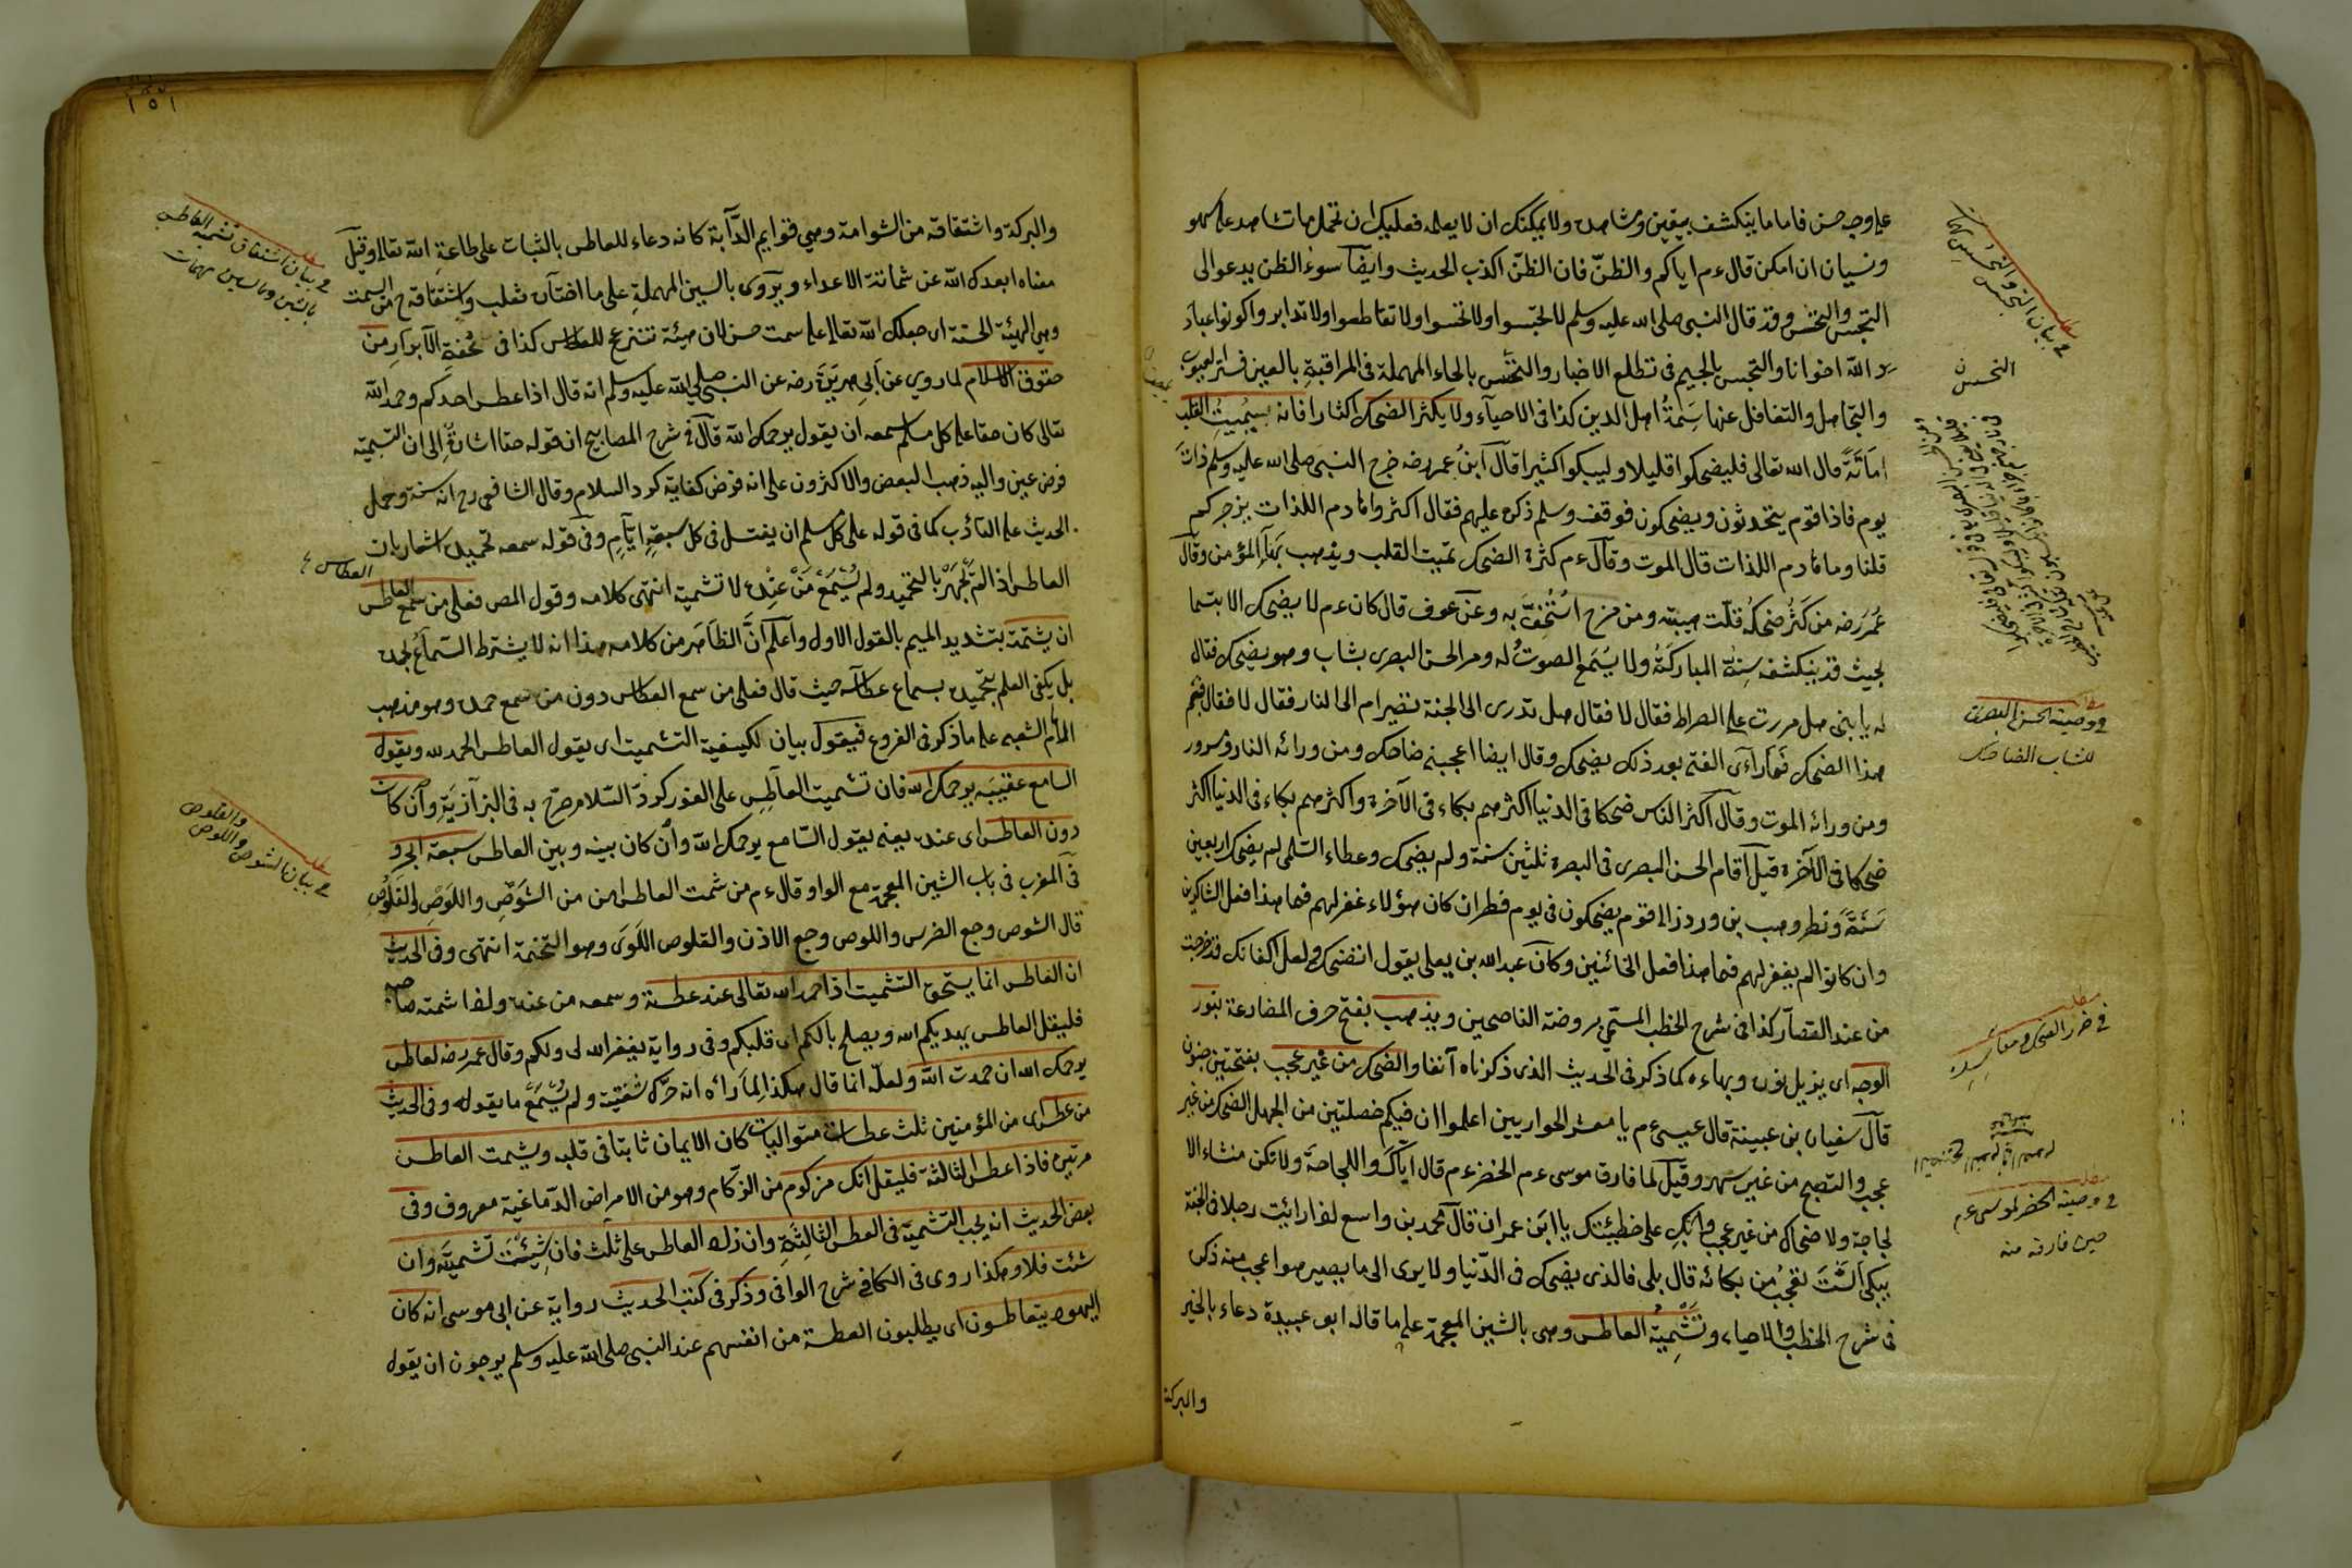 على وجه حسن فاما ما ينكشف بيقين ومشاهدة ولا يمكنك ان لا يعلمه فعليك ان تحمل ما تشاهد على سهو
ونسيان ان امكن قال ءم اياكم والظنّ فان الظنّ اكذب الحديث وايضا سوء الظن يدعو الى
التجسس والتحسس وقد قال النبى صلى الله عليه وسلم لا تجسسوا ولا تحسسوا ولا تقاطعوا ولا تدابروا وكونوا عباد
الله اخوانا والتجسس بالجيم فى تطلع الاخبار والتحسس بالحاء المهملة فى المراقبة بالعين فستر العيوب
والتجاهل والتغافل عنها سمةُ اهل الدين كذا فى الاحياء ولا يكثر الضحك اكثارا فانه يميت القلب
اماتةً قال الله تعالى فليضحكوا قليلا وليبكوا كثيرا قال ابن عمر رضه خرج النبى صلى الله عليه وسلم ذات
يوم فاذا قوم يتحدثون ويضحكون فوقف وسلم ذكره عليهم فقال اكثروا هادم اللذات يزجركم
قلنا وما هادم اللذات قال الموت وقال ءم كثرة الضحك تميت القلب ويذهب بهاء المؤمن وقال
عمر رضه من كثر ضحكه قلّت هيبته ومن مزح استخف به وعن عوف قال كان ءم لا يضحك الا بتسما
بحيث قد ينكشف سنة المباركة ولا يسمع الصوت له ومر الحسن البصرى بشاب وهو يضحك فقال
له يا بنى هل مررت على الصراط فقال لا فقال هل تدرى الى الجنة تصير ام الى النار فقال لا فقال ففيم
هذا الضحك فما رأى الفتى بعد ذلك يضحك وقال ايضا اعجبنى ضاحك ومن ورائه النار وسرور
ومن ورائه الموت وقال اكثر الناس ضحكا فى الدنيا اكثرهم بكاء فى الآخرة واكثرهم بكاء فى الدنيا اكثر
ضحكا فى الآخرة قيل اقام الحسن البصرى فى البصرة ثلثين سنة ولم يضحك وعطاء السلمى لم يضحك اربعين
سنةً ونظر وهب بن ورد الى قوم يضحكون فى يوم فطر ان كان هؤلاء غفر لهم فما هذا فعل الشاكرين
وان كانوا لم يغفر لهم فما هذا فعل الخائنين وكان عبد الله بن يعلى يقول اتضحك ولعل اكفانك قد خرجت
من عند القصار كذا فى شرح الخطب المسمى بروضة الناصحين ويذهب بفتح حرف المضارعة بنور
الوجه اى يزيل نوره وبهاءه كما ذكر فى الحديث الذى ذكرناه آنفا والضحك من غير عجب بفتحتين
قال سفيان بن عيينة قال عيسى ءم يا معشر الحواريين اعلموا ان فيكم خصلتين من الجهل الضحك من غير
عجب والتصبح من غير سهر وقيل لما فارق موسى ءم الخضر ءم قال اياك واللجاجة ولا تكن مشاء الا
لحاجة ولا ضحاك من غير عجب وابك على خطيئتك يا ابن عمران قال محمد بن واسع اذا رأيت رجلا فى الجنة
يبكى الست تعجب من بكائه قال بلى فالذى يضحك فى الدنيا ولا يرى الى ما يصير هو اعجب منه ذكره
فى شرح الخطب والاحياء وتشميت العاطس وهى بالشين المعجمة على ما قاله ابو عبيدة دعاء بالخير
والبركة
التحسس
فى وصية الحسن البصرى
للشاب الضاحك
مطلب
فى ضرر الضحك ومفاسده
مطلب
فى وصية الخضر لموسى ءم
حين فارقه منه
١٥١
والبركة واشتقاقه من الشوامة وهى قوايم الدآبة كانه دعاء للعاطس بالثبات على طاعة الله تعالى وقيل
معناه ابعدك الله عن شماتة الاعداء ويروى بالسين المهملة على ما اختاره ثعلب واشتقاقه ح من السمت
وهى الهيئة الحسنة اى جعلك الله تعالى على سمت حسن لان هيئة تنزعج للعطاس كذا فى تحفة الابرار من
حقوق الاسلام لما روى عن ابى هريرة رضه عن النبى صلى الله عليه وسلم انه قال اذا عطس احدكم وحمد الله
تعالى كان حقا على كل مسلم سمعه ان يقول يرحمك الله قال فى شرح المصابيح ان قوله حقا اشارة الى ان التشميت
فرض عين واليه ذهب البعض والاكثرون على انه فرض كفاية كرد السلام وقال الشافعى رح انه سنة وحمل
الحديث على التأدب كما فى قوله على كل مسلم ان يغتسل فى كل سبعة ايام وفى قوله سمعه تحميده اشعار بان
العاطس اذا لم يجهر بالتحميد ولم يسمع من عنده لا تشميت انتهى كلامه وقول المص فعلى من سمع العاطس
العطاس
ان يشمته بتشديد الميم بالقول الاول واعلم ان الظاهر من كلامه هذا انه لا يشترط السماع لحمده
بل يكفى العلم بتحميده بسماع عطاسه حيث قال فعلى من سمع العطاس دون من سمع حمده وهو مذهب
الامام الشعبى على ما ذكر فى الفروع فيقول بيان لكيفية التشميت اى يقول العاطس الحمد لله ويقول
السامع عقيبه يرحمك الله فان تشميت العاطس على الفور كرد السلام صرح به فى البزازية وان كان
دون العاطس اى عنده يعنى يقول السامع يرحمك الله وان كان بينه وبين العاطس سبعة ابحر و
فى المغرب فى باب الشين المعجمة مع الواو قال ءم من شمت العاطس امن من الشوص واللوص والعلوص
قال الشوص وجع الضرس واللوص وجع الاذن والعلوص اللوى وهو التخمة انتهى وفى الحديث
ان العاطس انما يستحق التشميت اذا حمد الله تعالى عند عطسة وسمعه من عنده واذا شمته صاحبه
فليقل العاطس يهديكم الله ويصلح بالكم اى قلبكم وفى رواية يغفر الله لى ولكم وقال عمر رضه لعاطس
يرحمك الله ان حمدت الله ولعله انما قال هكذا لما راه انه حرك شفتيه ولم يسمع ما يقوله وفى الحديث
من عطس اى من المؤمنين ثلث عطسات متواليات كان الايمان ثابتا فى قلبه ويشمت العاطس
مرتين فاذا عطس الثالثة فليقل انك مزكوم من الزكام وهو من الامراض الدماغية معروف وفى
بعض الحديث انه يجب التشميت فى العطس الثالثة وان زاد العاطس على ثلث فان شئت تشميته وان
شئت فلا وهكذا روى فى الكافى شرح الوافى وذكر فى كتب الحديث رواية عن ابى موسى انه كان
اليهود يتعاطسون اى يطلبون العطسة من انفسهم عند النبى صلى الله عليه وسلم يرجون ان يقول
مطلب
فى بيان اشتقاق تشميت العاطس
مطلب
فى بيان الشوص واللوص
والعلوص